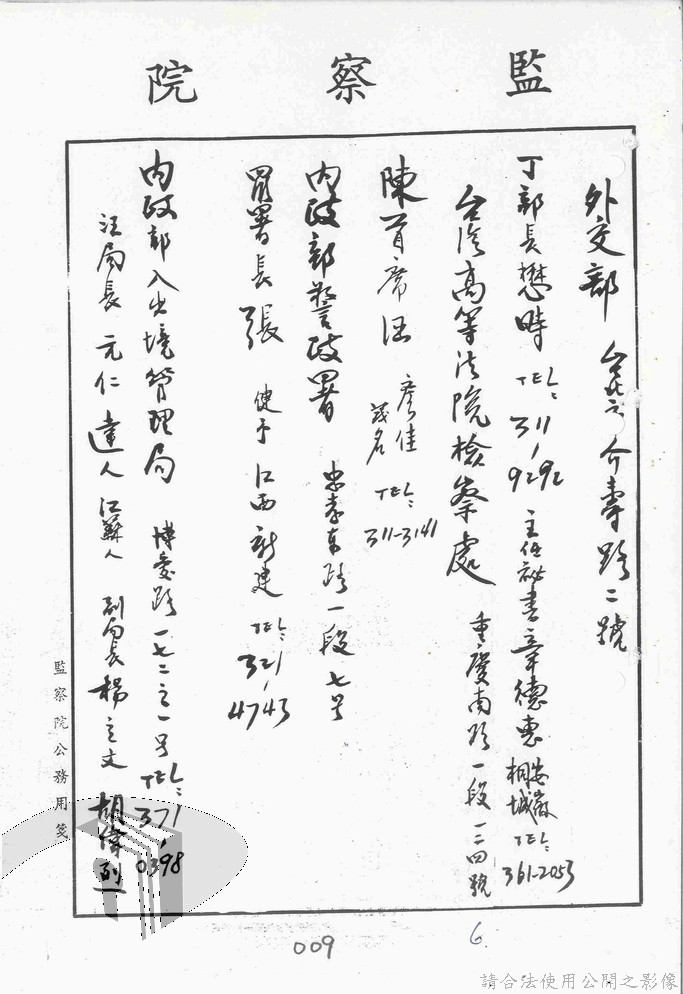 監察院
外交部 台北市介壽路二號
丁部長懋時 TEL: 311-9292 主任祕書章德惠 安徽桐城 TEL: 361-2053
台灣高等法院檢察處 重慶南路一段一二四號
陳首席涵 廖佳 茂名 TEL: 311-3141
內政部警政署 忠孝東路一段七号
羅署長張 健予 江西新建 TEL: 321-4743
內政部入出境管理局 博愛路一七二之一号 TEL: 371-0398
汪局長元仁 達人 江蘇人 副局長楊立文 胡偉列
監察院公務用箋
009
6
請合法使用公開之影像